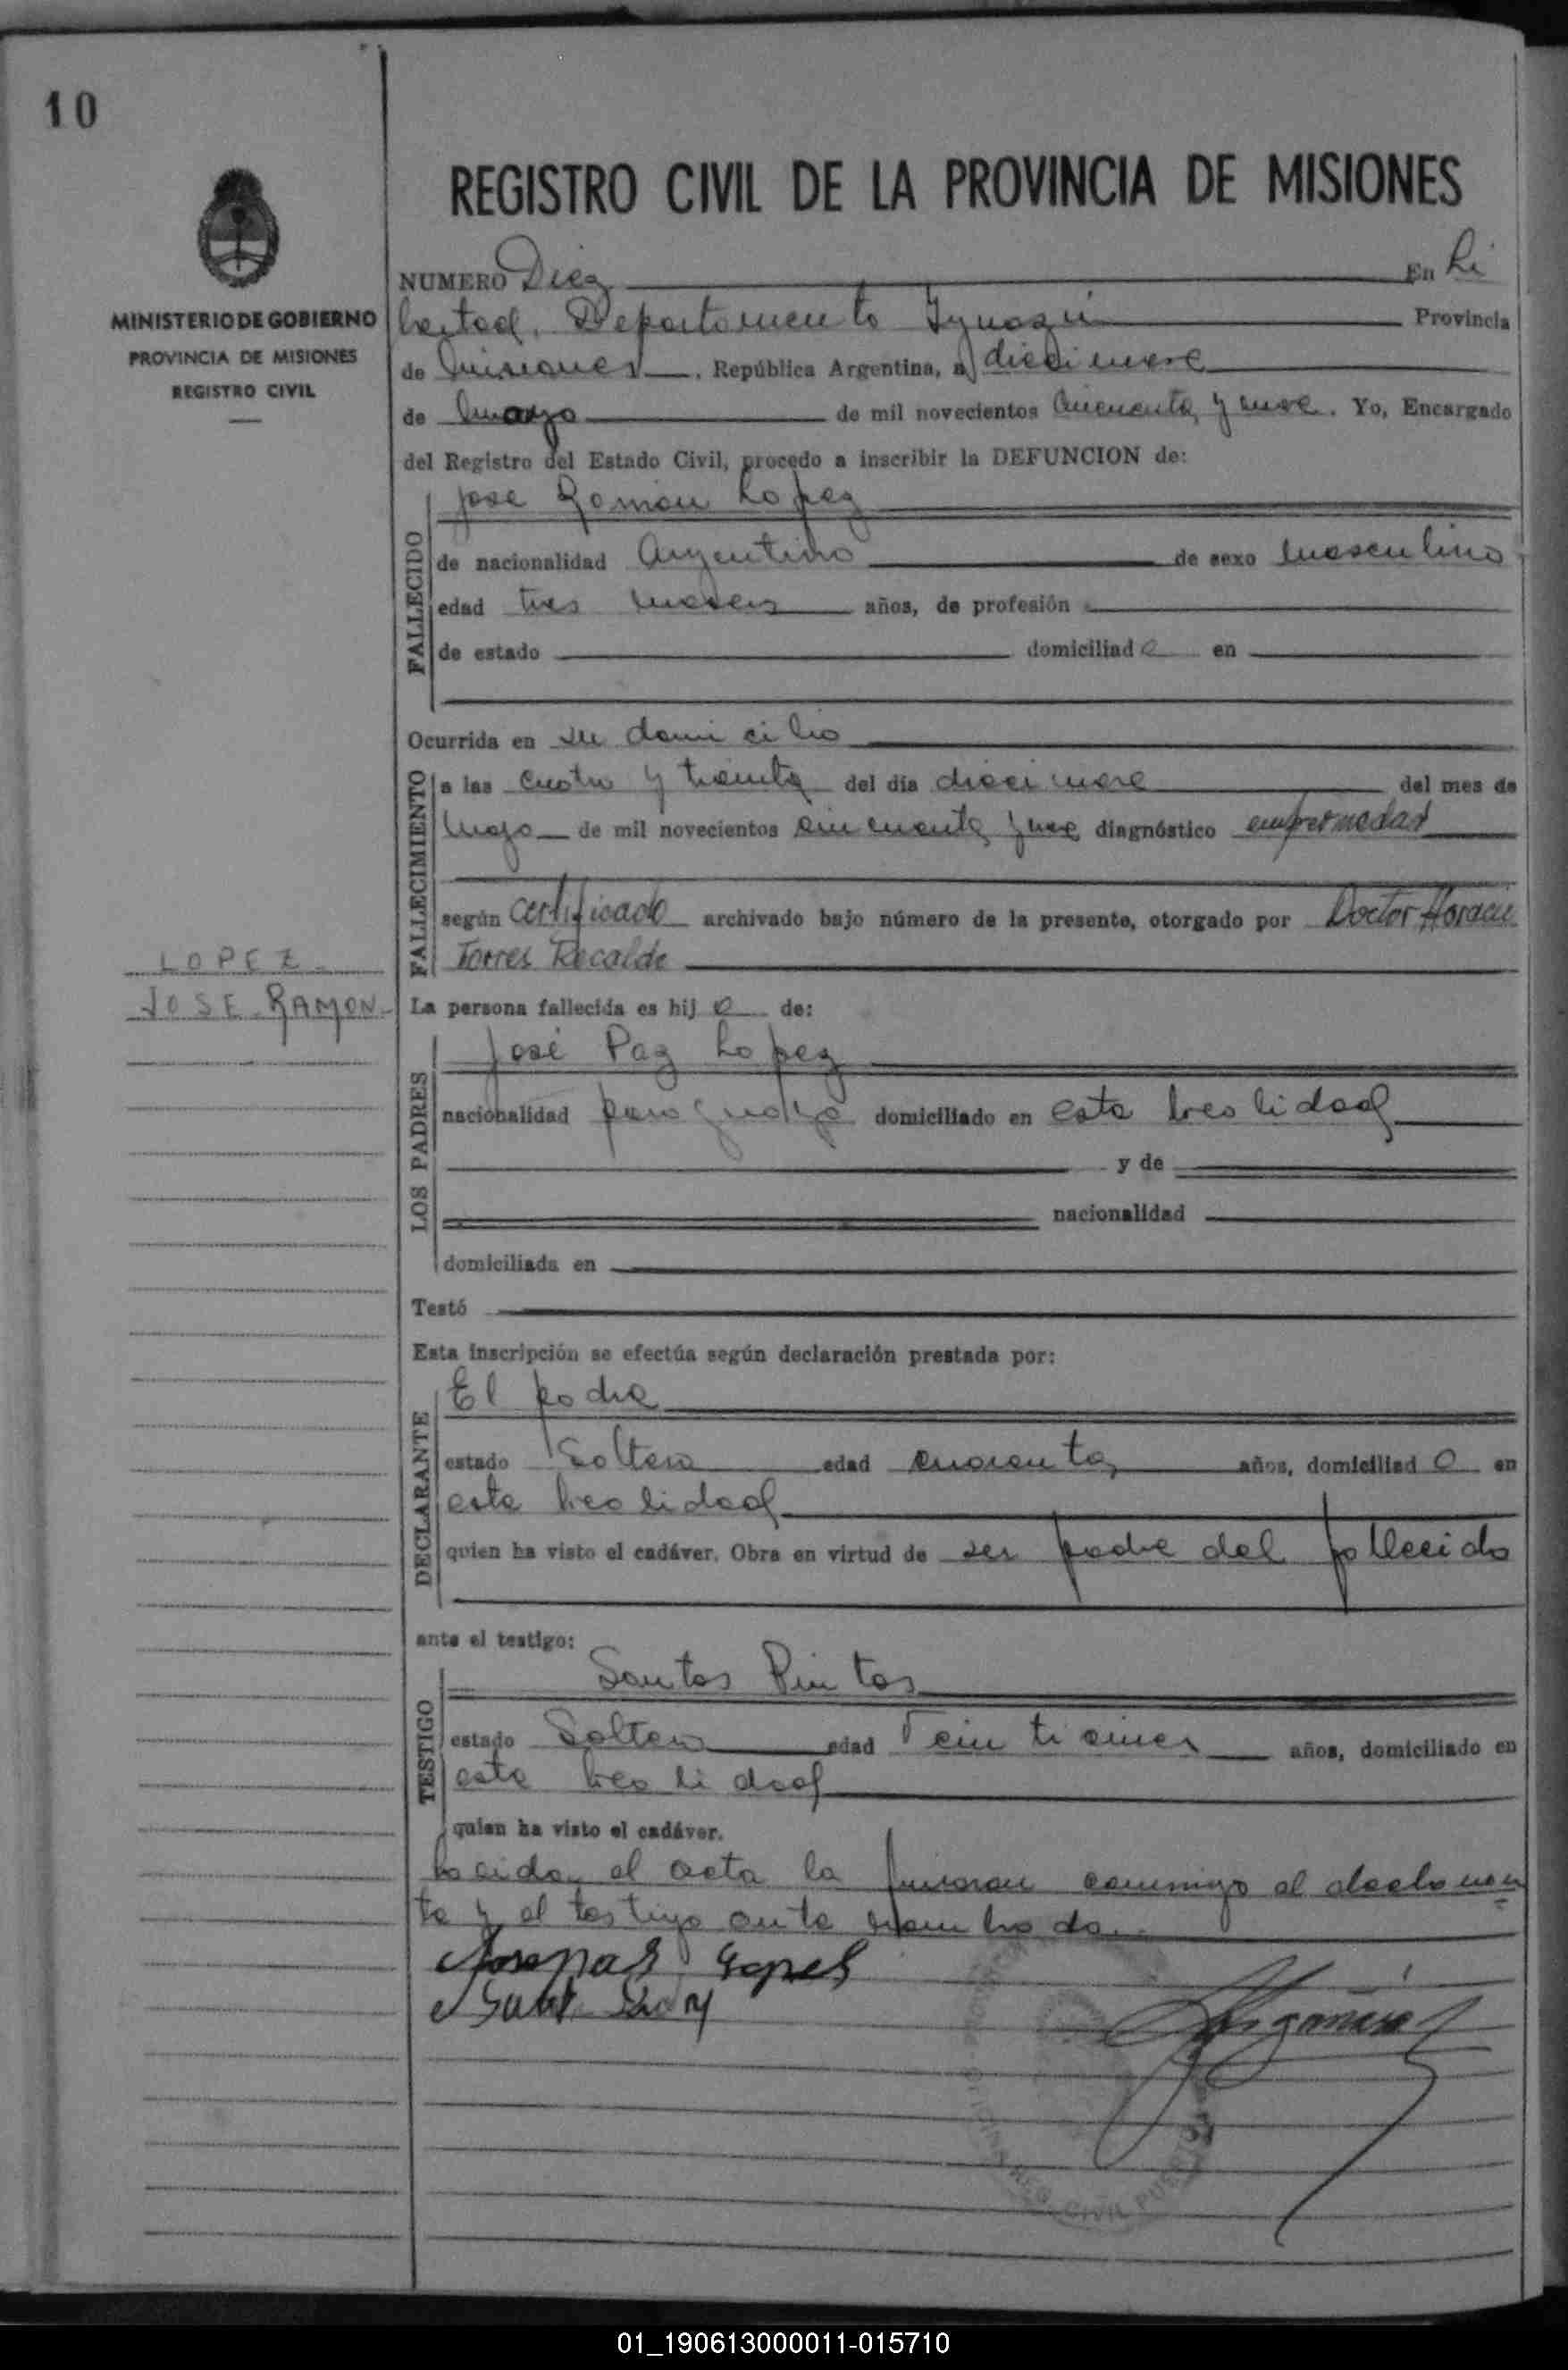 10
REGISTRO CIVIL DE LA PROVINCIA DE MISIONES
MINISTERIO DE GOBIERNO
PROVINCIA DE MISIONES
REGISTRO CIVIL
NUMERO Diez En Li
bertad, Departamento Iguazú Provincia
de Misiones. República Argentina, a diecinueve
de mayo de mil novecientos cincuenta y nueve. Yo, Encargado
del Registro del Estado Civil, procedo a inscribir la DEFUNCION de:
FALLECIDO
Jose Ramon Lopez
de nacionalidad Argentino de sexo masculino
edad tres meses años, de profesión
de estado domiciliado en
Ocurrida en su domicilio
FALLECIMIENTO
a las cuatro y treinta del día diecinueve del mes de
mayo de mil novecientos cincuenta y nueve diagnóstico enfermedad
según certificado archivado bajo número de la presente, otorgado por Doctor Horacio
Torres Recalde
LOPEZ
JOSE RAMON
La persona fallecida es hijo de:
LOS PADRES
José Paz Lopez
nacionalidad paraguayo domiciliado en esta localidad
y de
nacionalidad
domiciliada en
Testó
Esta inscripción se efectúa según declaración prestada por:
DECLARANTE
El padre
estado Soltero edad cuarenta años, domiciliado en
esta localidad
quien ha visto el cadáver. Obra en virtud de ser padre del fallecido
ante el testigo:
TESTIGO
Santos Pintos
estado Soltero edad Veinticinco años, domiciliado en
esta localidad
quien ha visto el cadáver.
Leida el acta la firman conmigo el declaran
te y el testigo ante nombrado.
REG. CIVIL
01_190613000011-015710